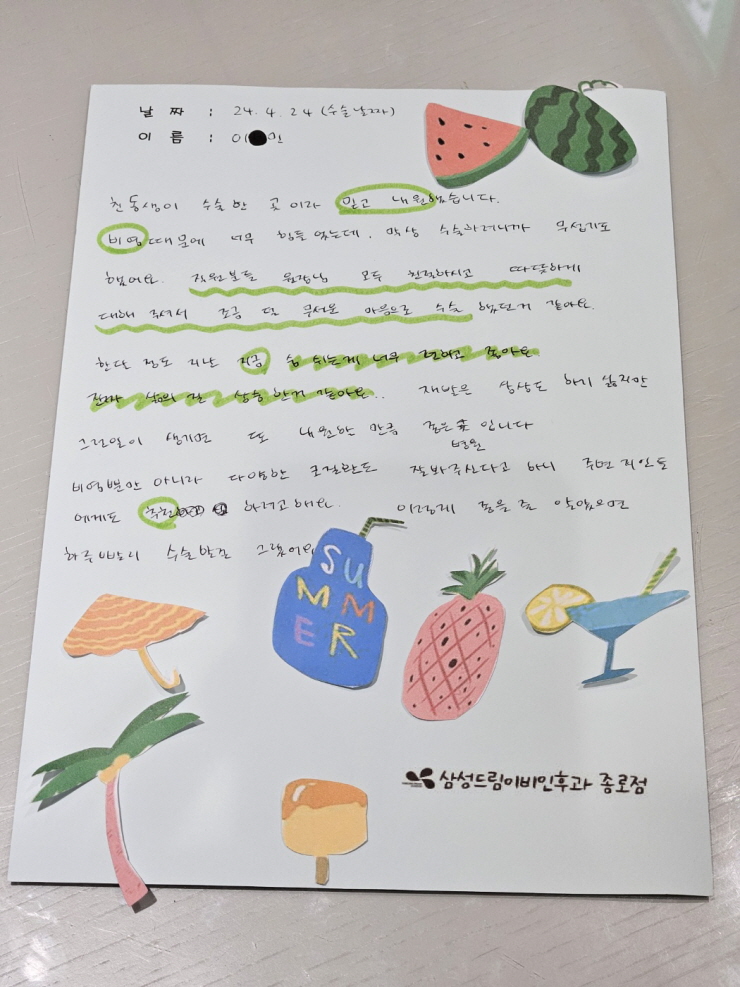 날 짜 : 24. 4. 24 (수술날짜)
이 름 : 이 민
친동생이 수술한 곳이라 믿고 내원했습니다.
비염때문에 너무 힘들었는데, 막상 수술하려니까 무섭기도
했어요. 직원분들 원장님 모두 친절하시고 따뜻하게
대해 주셔서 조금 덜 무서운 마음으로 수술 했던거 같아요.
한달 정도 지난 지금 숨 쉬는게 너무 편하고 좋아요
진짜 삶의 질 상승한거 같아요.. 재발은 상상도 하기 싫지만
그런일이 생기면 또 내원할 만큼 좋은 곳 입니다
병원
비염뿐만 아니라 다양한 코질환도 잘봐주신다고 하니 주변 지인들
에게도 추천 하려고 해요. 이렇게 좋을 줄 알았으면
하루빨리 수술받을 그랬어요
SUMMER
삼성드림이비인후과 종로점